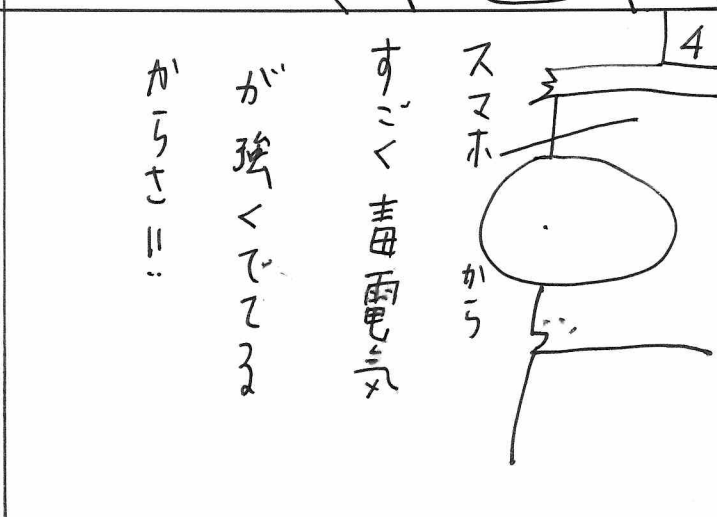 4
スマホから
すごく毒電気
が強くでてる
からさ!!